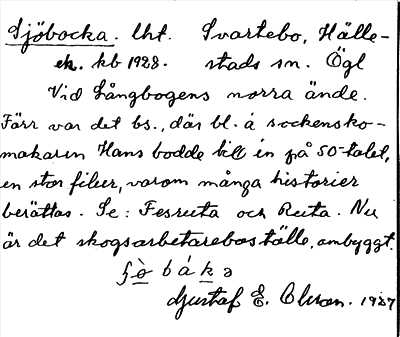 Sjöbocka. lht. Svartebo, Hälle-
ek. kb 1928. stads sn. Ögl
Vid Långbogens norra ände.
Förr var det bs., där bl. a sockensko-
makaren Hans bodde till in på 50-talet,
en stor filur, varom många historier
berättas. Se: Fesruta och Ruta. Nu
är det skogsarbetareboställe, ombyggt.
båka
Gustaf E. Olsson. 1927